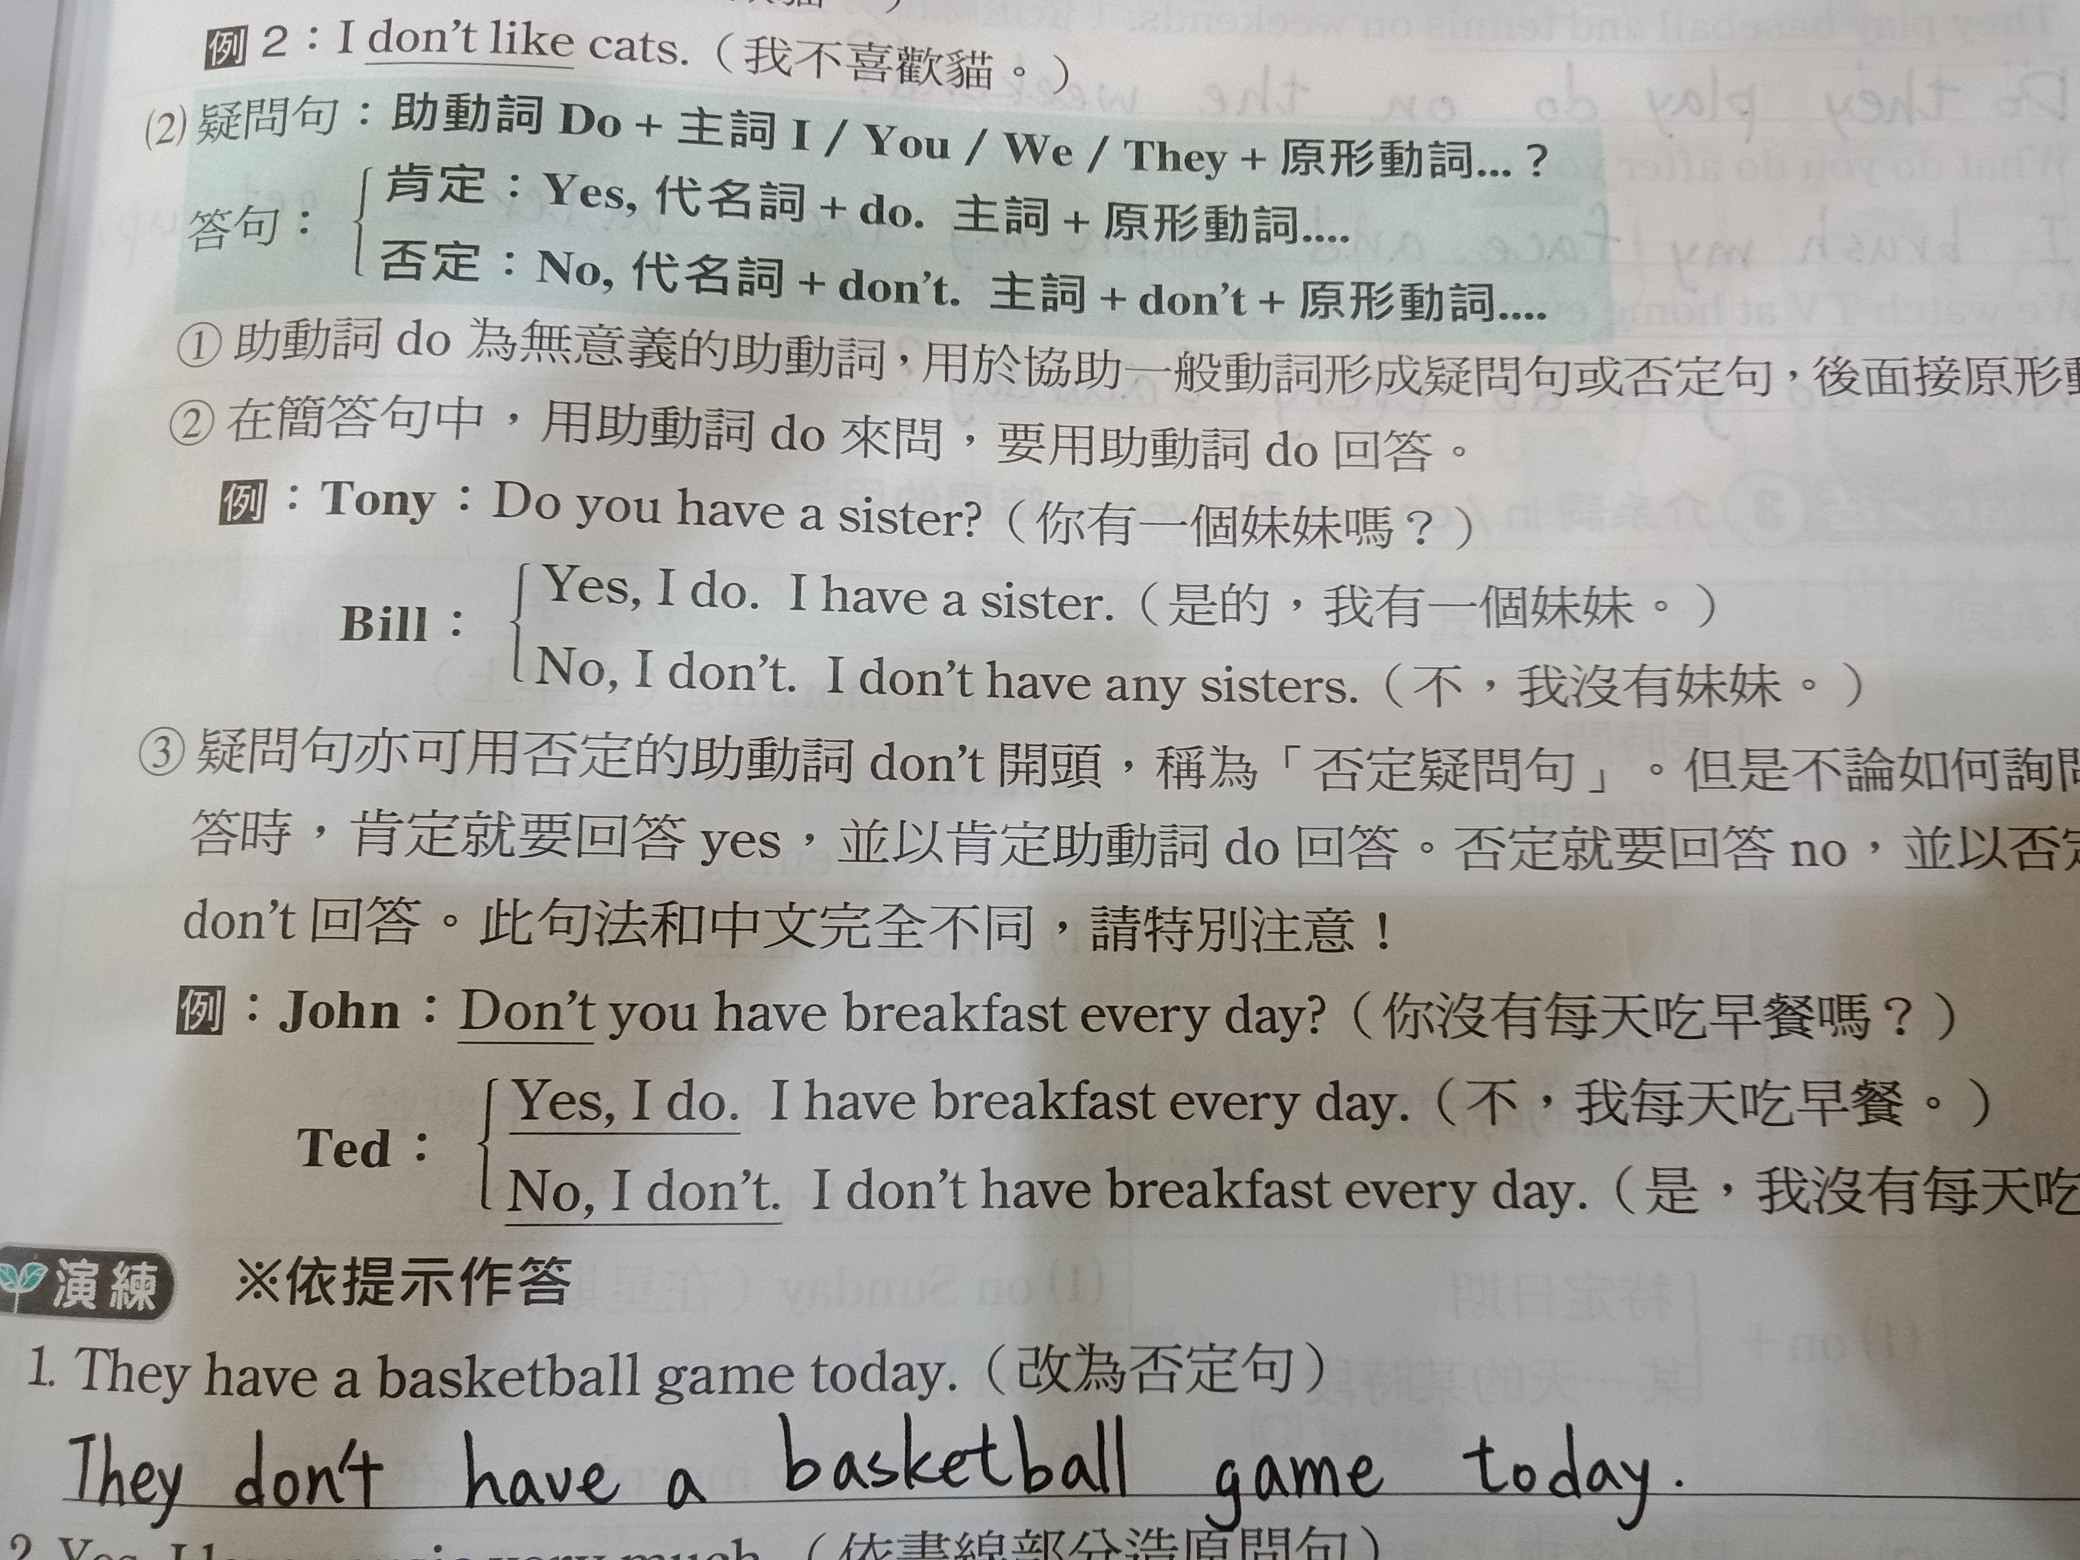 例2：I don't like cats.（我不喜歡貓。）
(2)疑問句：助動詞 Do + 主詞 I / You / We / They + 原形動詞...？
答句：
肯定：Yes, 代名詞 + do. 主詞 + 原形動詞....
否定：No, 代名詞 + don't. 主詞 + don't + 原形動詞....
①助動詞 do 為無意義的助動詞，用於協助一般動詞形成疑問句或否定句，後面接原形
②在簡答句中，用助動詞 do 來問，要用助動詞 do 回答。
例：Tony：Do you have a sister?（你有一個妹妹嗎？）
Bill：
Yes, I do. I have a sister.（是的，我有一個妹妹。）
No, I don't. I don't have any sisters.（不，我沒有妹妹。）
③疑問句亦可用否定的助動詞 don't 開頭，稱為「否定疑問句」。但是不論如何詢問
答時，肯定就要回答 yes，並以肯定助動詞 do 回答。否定就要回答 no，並以否定
don't 回答。此句法和中文完全不同，請特別注意！
例：John：Don't you have breakfast every day?（你沒有每天吃早餐嗎？）
Ted：
Yes, I do. I have breakfast every day.（不，我每天吃早餐。）
No, I don't. I don't have breakfast every day.（是，我沒有每天吃
演練 ※依提示作答
1. They have a basketball game today.（改為否定句）
They don't have a basketball game today.
2. Yes, I very much.（依畫線部分造原問句）